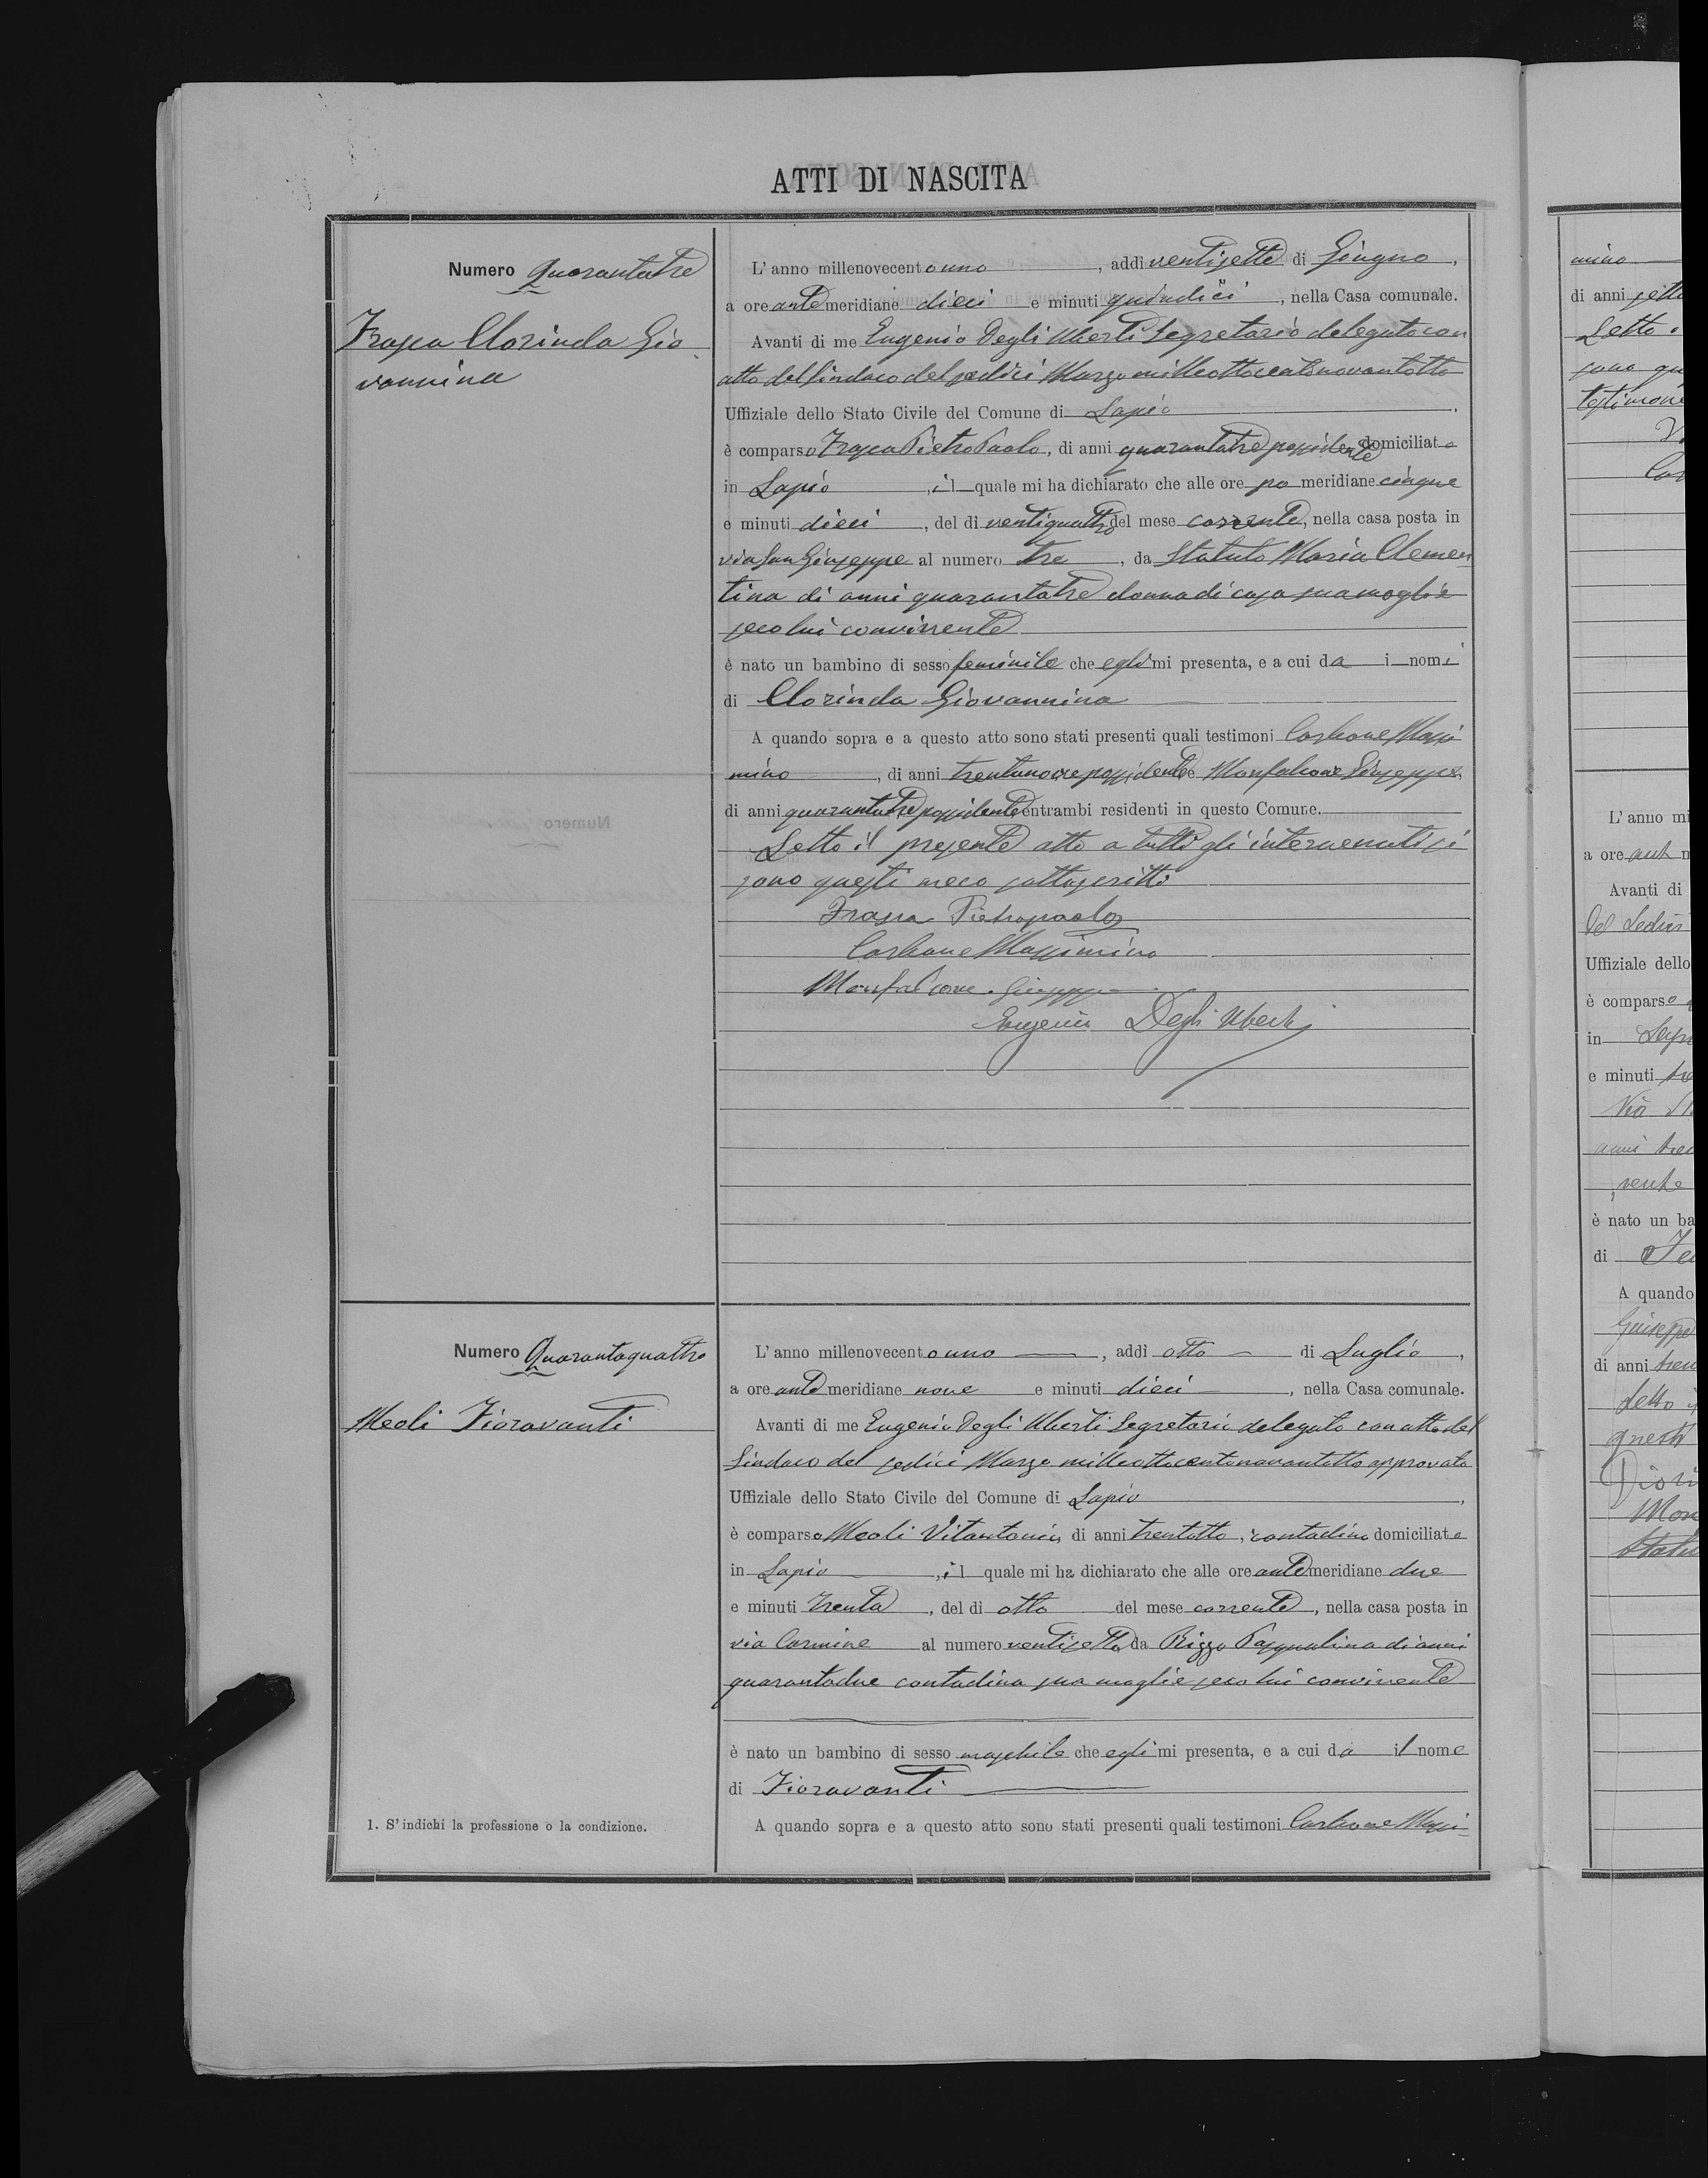 ATTI DI NASCITA
Numero Quarantatre
Frasca Clorinda Gio-
vannina
L'anno millenovecentouno, addì ventisette di Giugno,
a ore antemeridiane dieci e minuti quindici, nella Casa comunale.
Avanti di me Eugenio Degli Uberti Segretario delegato con
atto del Sindaco del sedici Marzo milleottocentonovantotto
Uffiziale dello Stato Civile del Comune di Lapio.
è comparso Frasca Pietro Paolo, di anni quarantatre possidente domiciliato
in Lapio, il quale mi ha dichiarato che alle ore po meridiane cinque
e minuti dieci, del dì ventiquattro del mese corrente, nella casa posta in
via San Giuseppe al numero tre, da Statuto Maria Clemen
tina di anni quarantatre donna di casa sua moglie
seco lui convivente
è nato un bambino di sesso feminile che egli mi presenta, e a cui da i nomi
di Clorinda Giovannina
A quando sopra e a questo atto sono stati presenti quali testimoni Carbone Massi
mino, di anni trentanove possidente e Monfalcone Giuseppe,
di anni quarantatre possidente entrambi residenti in questo Comune.
Letto il presente atto a tutti gli intervenuti si
sono questi meco sottoscritti
Frasca Pietropaolo
Carbone Massimino
Monfalcone Giuseppe
Eugenio Degli Uberti
Numero Quarantaquattro
Meoli Fioravanti
L'anno millenovecentouno, addì otto di Luglio,
a ore antemeridiane nove e minuti dieci, nella Casa comunale.
Avanti di me Eugenio Degli Uberti Segretario delegato con atto del
Sindaco del sedici Marzo milleottocentonovantotto approvato
Uffiziale dello Stato Civile del Comune di Lapio,
è comparso Meoli Vitantonio, di anni trentotto, contadino domiciliato
in Lapio, il quale mi ha dichiarato che alle ore antemeridiane due
e minuti trenta, del dì otto del mese corrente, nella casa posta in
via Carmine al numero ventisette, da Rizzo Pasqualina di anni
quarantadue contadina sua moglie seco lui convivente
è nato un bambino di sesso maschile che egli mi presenta, e a cui da il nome
di Fioravanti
A quando sopra e a questo atto sono stati presenti quali testimoni Carbone Massi-
1. S'indichi la professione o la condizione.
mino
di anni sette
Letto
sono qu
testimone
L'anno mi
a ore ant m
Avanti di
del Sedici
Uffiziale dello
è comparso
in Lapio
e minuti tre
Via
anni tren
vente
è nato un ba
di
A quando
Giuseppe
di anni tren
Letto
questi
Mon
Statu